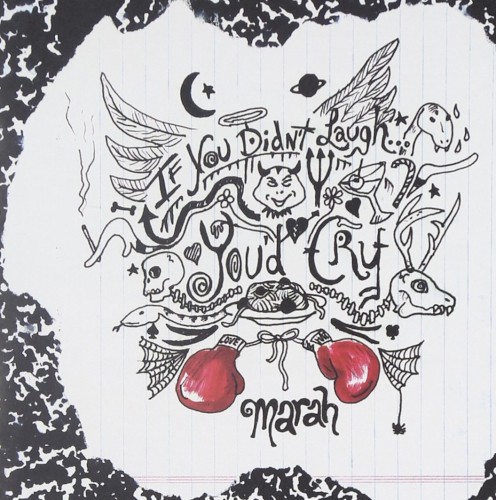 If You Didn't Laugh
You'd Cry
LOVE
Marah